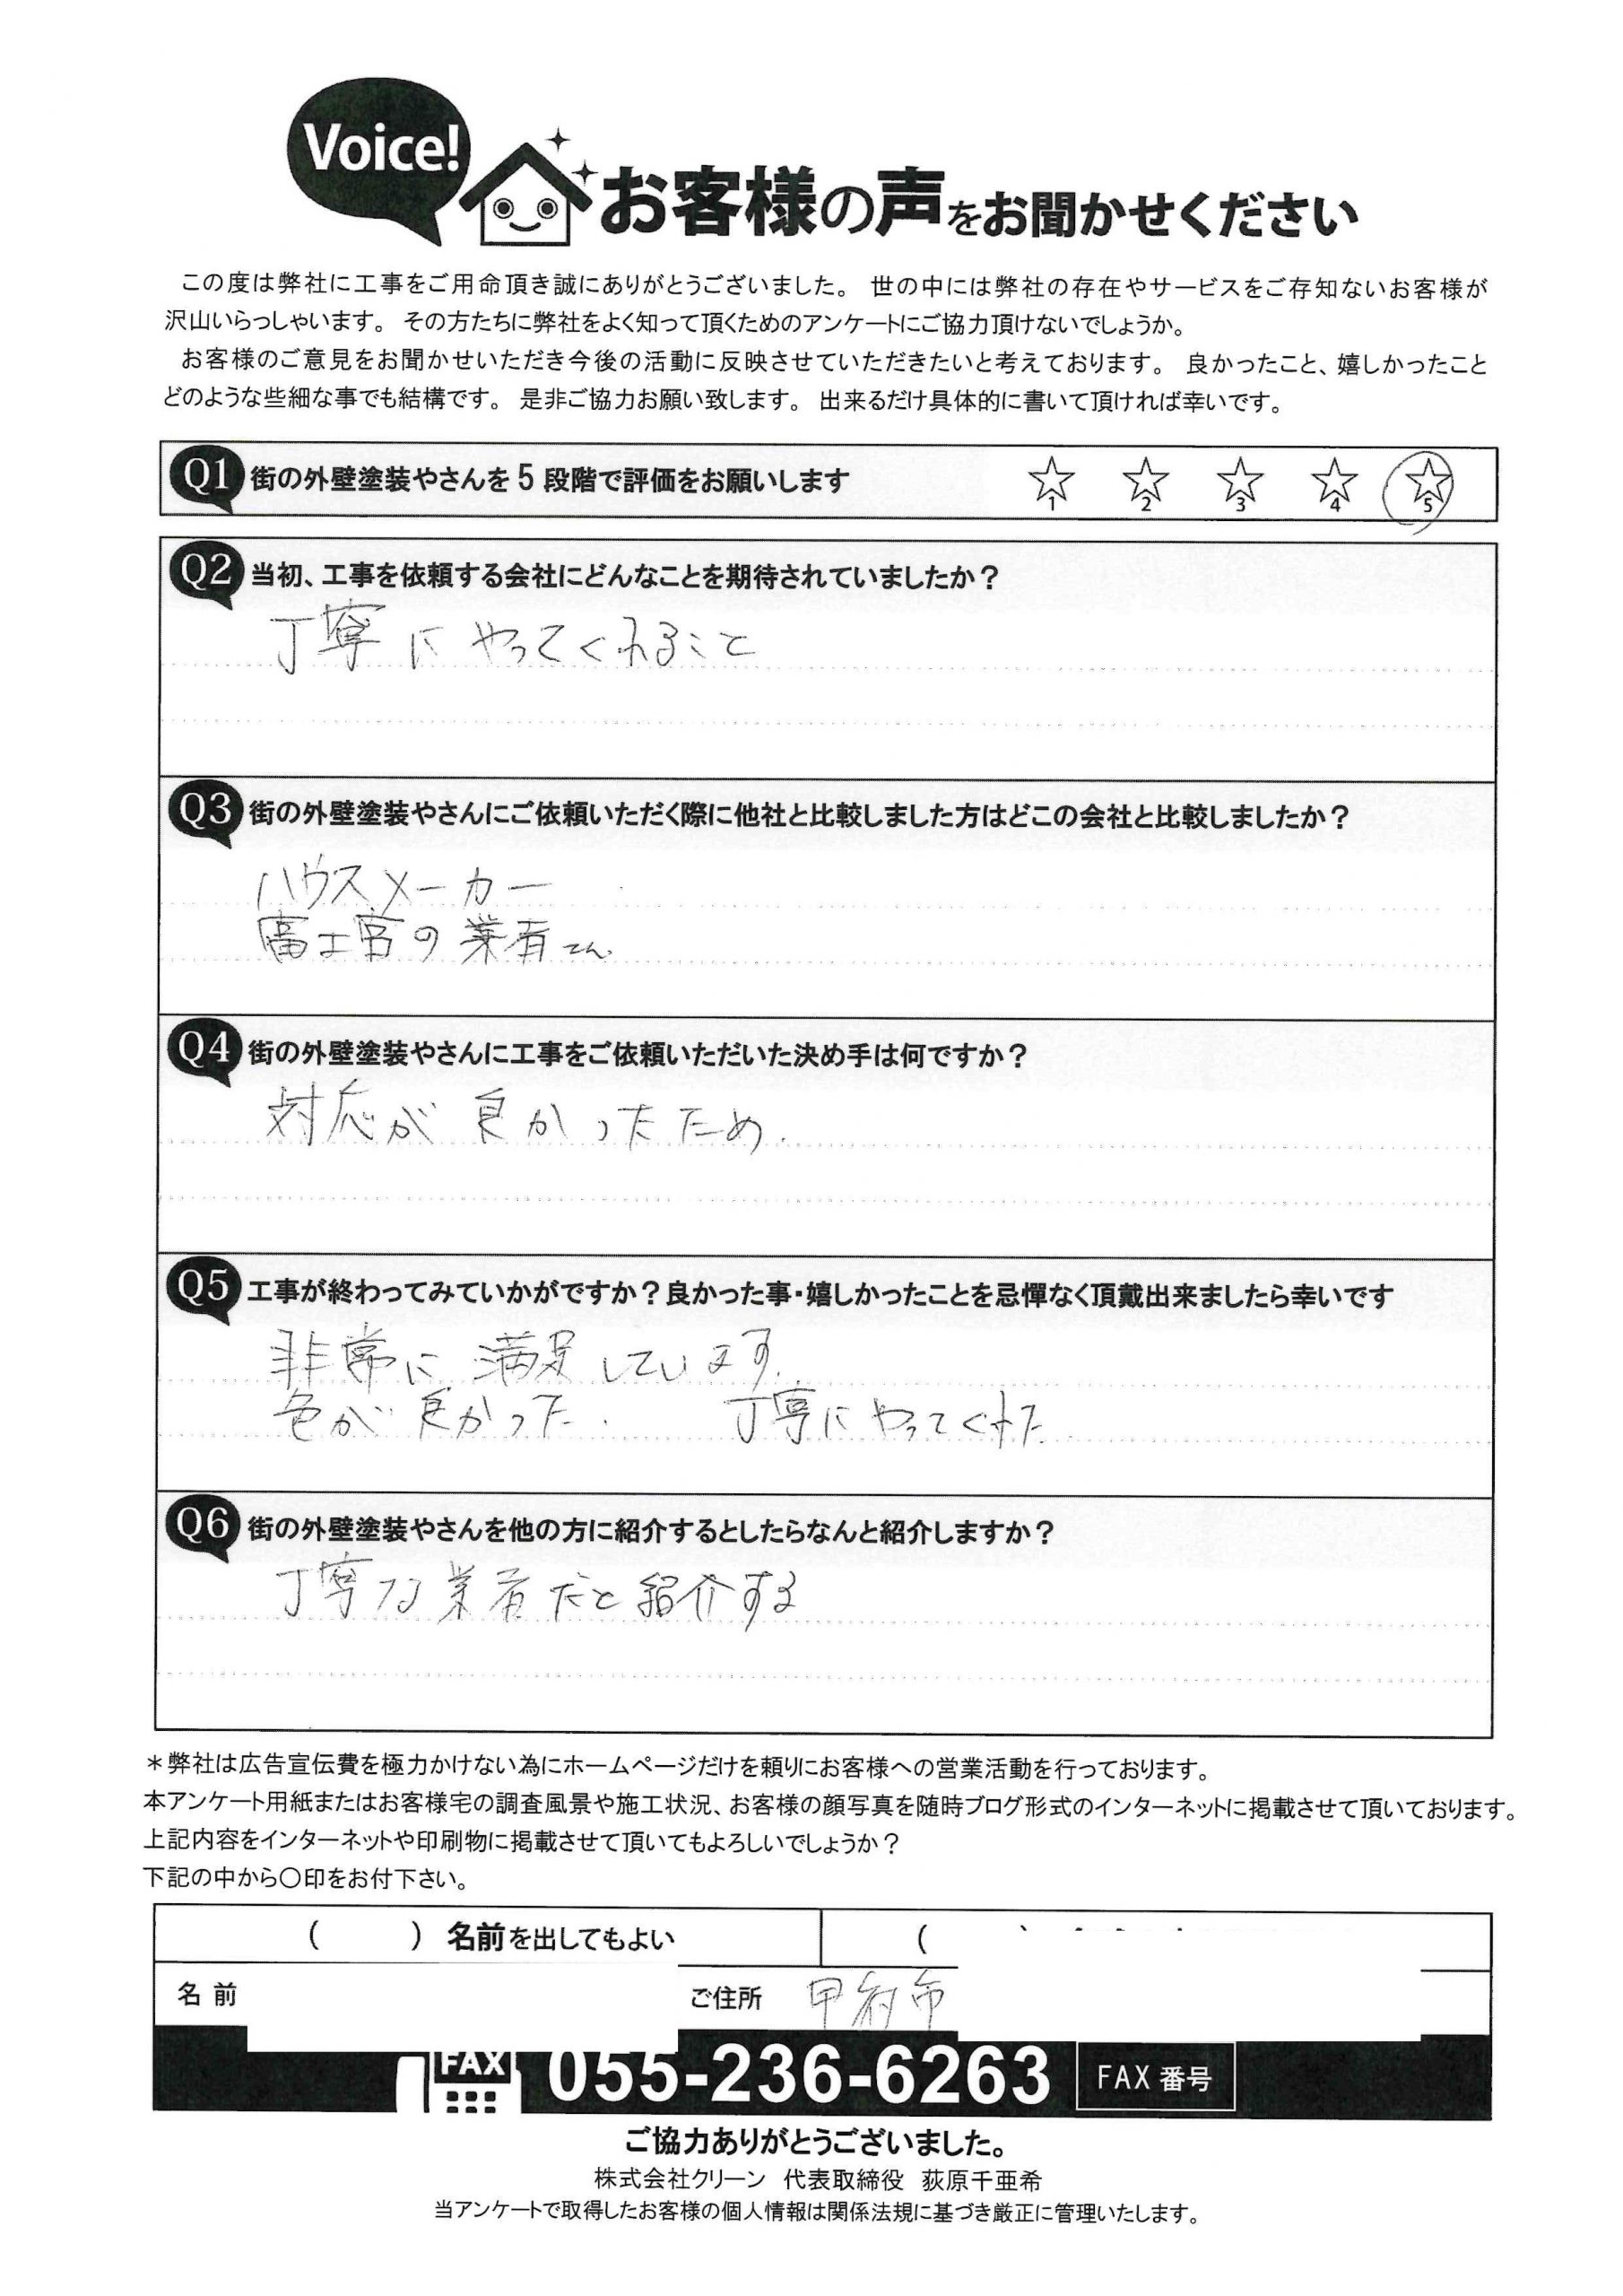 Voice!
お客様の声をお聞かせください
この度は弊社に工事をご用命頂き誠にありがとうございました。 世の中には弊社の存在やサービスをご存知ないお客様が
沢山いらっしゃいます。 その方たちに弊社をよく知って頂くためのアンケートにご協力頂けないでしょうか。
お客様のご意見をお聞かせいただき今後の活動に反映させていただきたいと考えております。 良かったこと、嬉しかったこと
どのような些細な事でも結構です。 是非ご協力お願い致します。 出来るだけ具体的に書いて頂ければ幸いです。
Q1 街の外壁塗装やさんを5段階で評価をお願いします ☆1 ☆2 ☆3 ☆4 ☆5
Q2 当初、工事を依頼する会社にどんなことを期待されていましたか？
丁寧にやってくれること
Q3 街の外壁塗装やさんにご依頼いただく際に他社と比較しました方はどこの会社と比較しましたか？
ハウスメーカー
富士宮の業者さん
Q4 街の外壁塗装やさんに工事をご依頼いただいた決め手は何ですか？
対応が良かったため.
Q5 工事が終わってみていかがですか？良かった事・嬉しかったことを忌憚なく頂戴出来ましたら幸いです
非常に満足しています.
色が良かった. 丁寧にやってくれた
Q6 街の外壁塗装やさんを他の方に紹介するとしたらなんと紹介しますか？
丁寧な業者だと紹介する
＊弊社は広告宣伝費を極力かけない為にホームページだけを頼りにお客様への営業活動を行っております。
本アンケート用紙またはお客様宅の調査風景や施工状況、お客様の顔写真を随時ブログ形式のインターネットに掲載させて頂いております。
上記内容をインターネットや印刷物に掲載させて頂いてもよろしいでしょうか？
下記の中から〇印をお付下さい。
（ ）名前を出してもよい （
名前 ご住所 甲府市
FAX 055-236-6263 FAX番号
ご協力ありがとうございました。
株式会社クリーン 代表取締役 荻原千亜希
当アンケートで取得したお客様の個人情報は関係法規に基づき厳正に管理いたします。